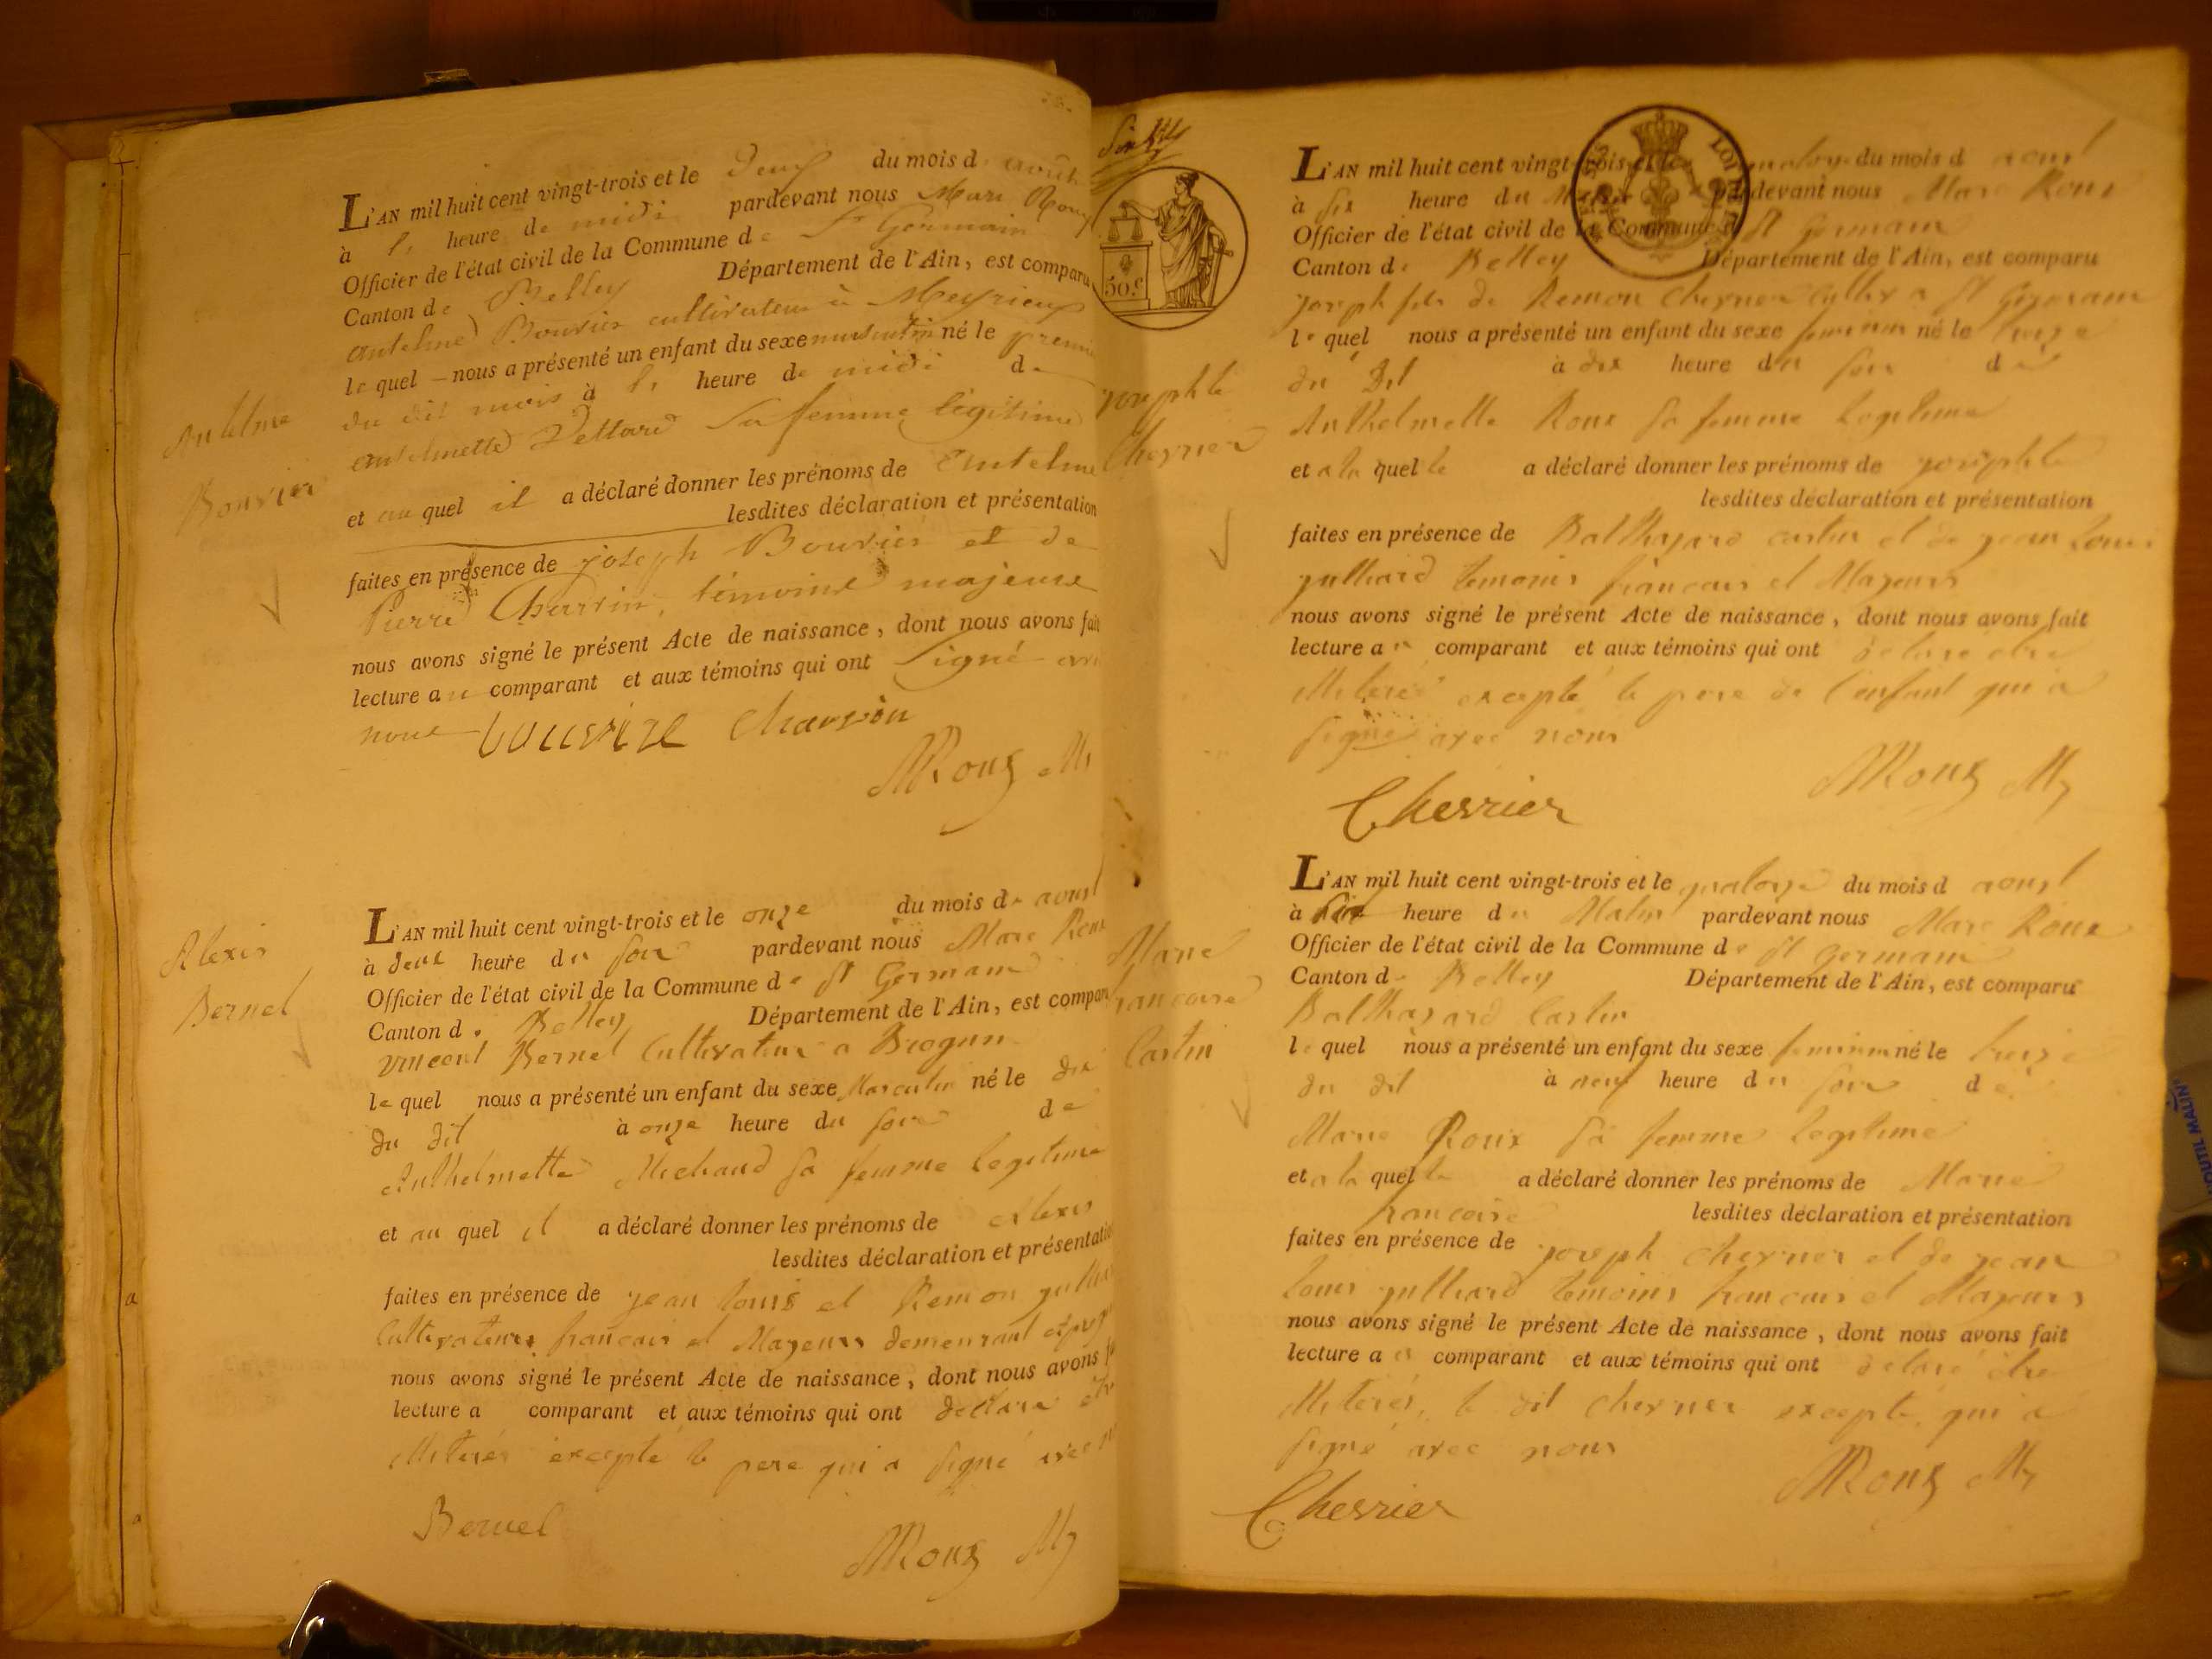 L'AN mil huit cent vingt-trois et le deux du mois d août
à heure de midi pardevant nous Marc Roux
Officier de l'état civil de la Commune de St Germain
Canton de Belley Département de l'Ain, est comparu
antelme Bouvier cultivateur à Meyrieux
lequel nous a présenté un enfant du sexe masculin né le premier
du dit mois à heure de midi de
antelmette sa femme légitime
et au quel il a déclaré donner les prénoms de antelme
lesdites déclaration et présentation
faites en présence de joseph Bouvier et de
Pierre témoins majeurs
nous avons signé le présent Acte de naissance, dont nous avons fait
lecture au comparant et aux témoins qui ont signé avec
nous
MRoux
Antelme
Bouvier
L'AN mil huit cent vingt-trois et le onze du mois de aoust
à deux heure du soir pardevant nous Marc Roux
Officier de l'état civil de la Commune de St Germain
Canton de Belley Département de l'Ain, est compar
vincent Bernel Cultivateur a Brognin
lequel nous a présenté un enfant du sexe Masculin né le dix
du dit à onze heure du soir de
Anthelmette Michaud sa femme legitime
et au quel il a déclaré donner les prénoms de alexis
lesdites déclaration et présentatio
faites en présence de jean louis et Remon
Cultivateurs francais et Mageurs demeurant
nous avons signé le présent Acte de naissance, dont nous avons f
lecture a comparant et aux témoins qui ont declare
illiterés excepté le pere qui a signé avec
Bernel
MRoux
Alexis
Bernel
50.c
L'AN mil huit cent vingt-trois et le quatorze du mois d aoust
à six heure du Matin pardevant nous Marc Roux
Officier de l'état civil de la Commune d St Germain
Canton de Belley Département de l'Ain, est comparu
joseph fils de Remon Chervier cultivr a St Germain
lequel nous a présenté un enfant du sexe feminin né le treize
du dit à dix heure du soir de
Anthelmette Roux sa femme legitime
et a la quelle a déclaré donner les prénoms de josephte
lesdites déclaration et présentation
faites en présence de Balthazard castin et de jean louis
julliard temoins francais et Mageurs
nous avons signé le présent Acte de naissance, dont nous avons fait
lecture au comparant et aux témoins qui ont declaré etre
illiterés excepté le pere de l'enfant qui a
signé avec nous
MRoux
Chervier
josephte
Chervier
L'AN mil huit cent vingt-trois et le quatorze du mois d aoust
à six heure du Matin pardevant nous Marc Roux
Officier de l'état civil de la Commune de St Germain
Canton de Belley Département de l'Ain, est comparu
Balthazard Castin
lequel nous a présenté un enfant du sexe feminin né le treize
du dit à neuf heure du soir de
Marie Roux sa femme legitime
et a la quelle a déclaré donner les prénoms de Marie
francoise lesdites déclaration et présentation
faites en présence de joseph chervier et de jean
louis julliard temoins francais et Mageurs
nous avons signé le présent Acte de naissance, dont nous avons fait
lecture au comparant et aux témoins qui ont declaré etre
illiterés, le dit chervier excepté qui a
signé avec nous
MRoux
Chervier
Marie
francoise
Castin